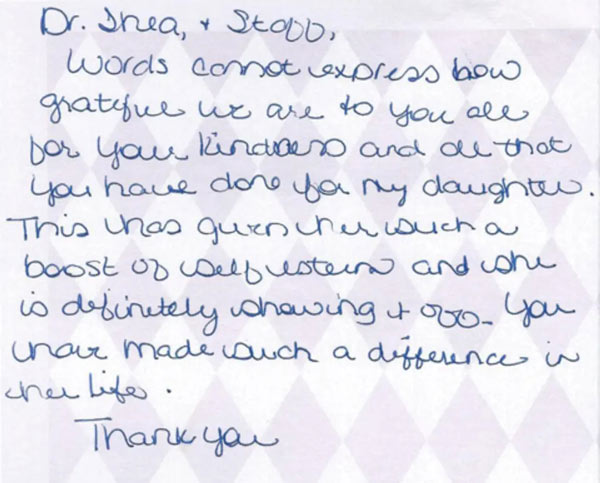 Dr. Shea, + Staff,
Words cannot express how
grateful we are to you all
for your kindness and all that
you have done for my daughter.
This has given her such a
boost of self esteem and she
is definitely showing it off. You
have made such a difference in
her life.
Thank you